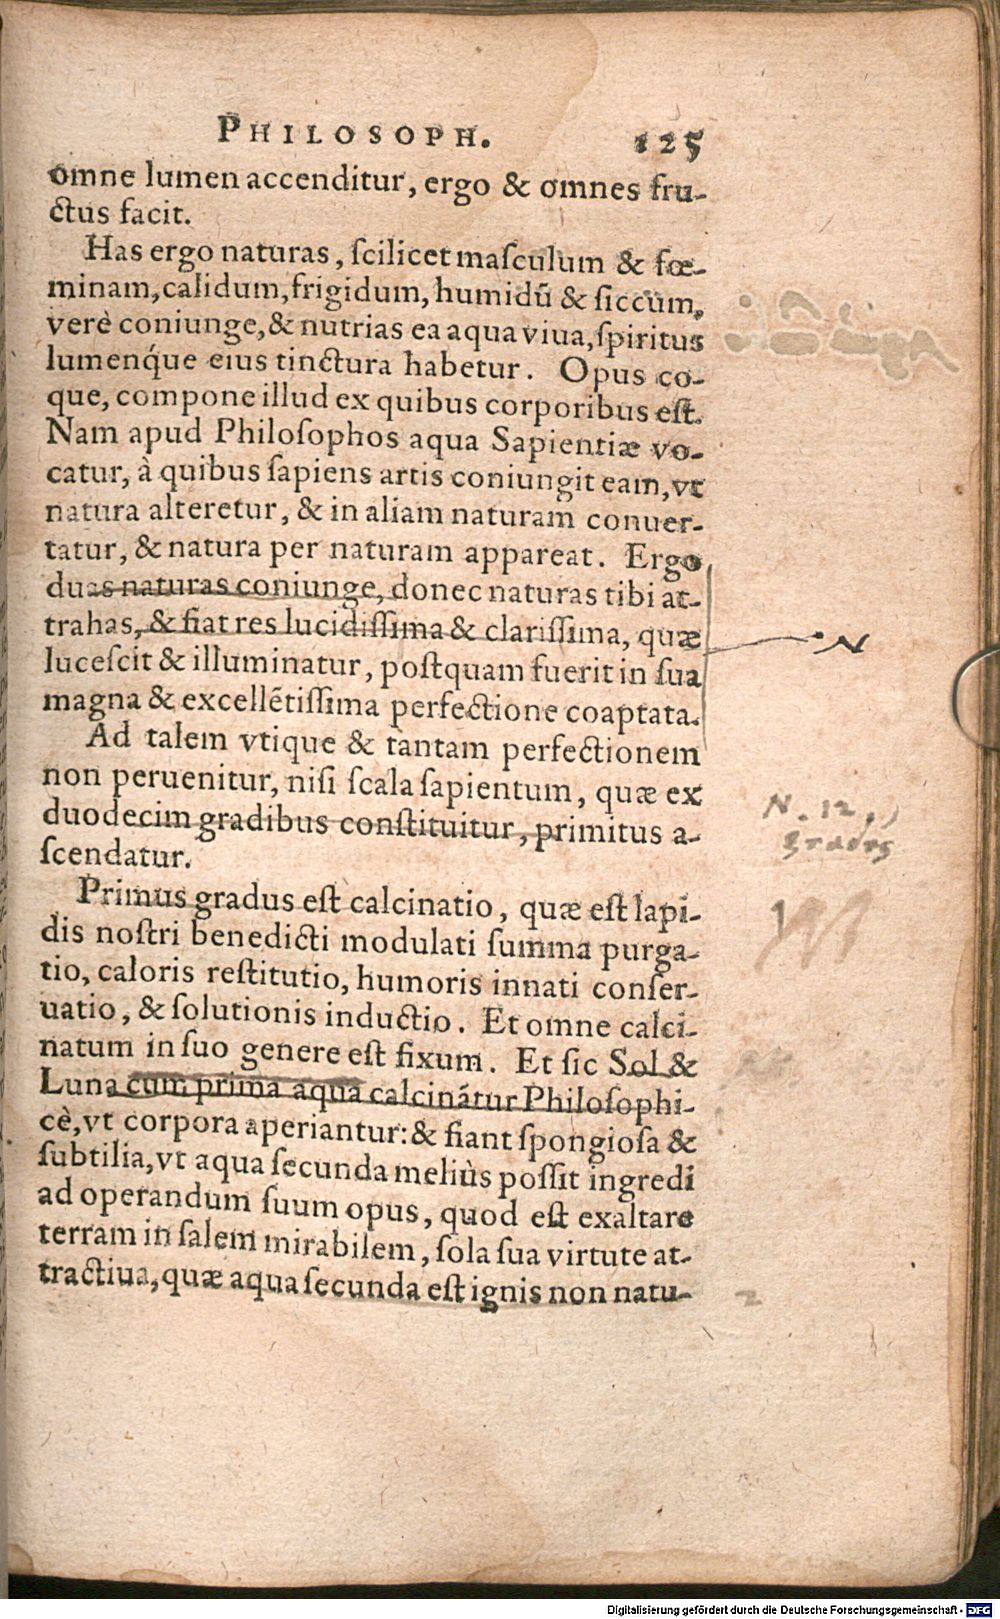 PHILOSOPH. 125
omne lumen accenditur, ergo & omnes fru-
ctus facit.
Has ergo naturas, ſcilicet maſculum & fœ-
minam, calidum, frigidum, humidũ & ſiccum,
verè coniunge, & nutrias ea aqua viua, ſpiritus
lumenq́ue eius tinctura habetur. Opus co-
que, compone illud ex quibus corporibus eſt.
Nam apud Philoſophos aqua Sapientiæ vo-
catur, à quibus ſapiens artis coniungit eam, vt
natura alteretur, & in aliam naturam conuer-
tatur, & natura per naturam appareat. Ergo
duas naturas coniunge, donec naturas tibi at-
trahas, & fiat res lucidiſſima & clariſſima, quæ
N
luceſcit & illuminatur, poſtquam fuerit in ſua
magna & excellẽtiſſima perfectione coaptata.
Ad talem vtique & tantam perfectionem
non peruenitur, niſi ſcala ſapientum, quæ ex
N. 12.
duodecim gradibus conſtituitur, primitus a-
ſcendatur.
Primus gradus eſt calcinatio, quæ eſt lapi-
1
dis noſtri benedicti modulati ſumma purga-
tio, caloris reſtitutio, humoris innati conſer-
uatio, & ſolutionis inductio. Et omne calci-
natum in ſuo genere eſt fixum. Et ſic Sol &
Luna cum prima aqua calcinãtur Philoſophi-
cè, vt corpora aperiantur: & fiant ſpongioſa &
ſubtilia, vt aqua ſecunda meliùs poſſit ingredi
ad operandum ſuum opus, quod eſt exaltare
terram in ſalem mirabilem, ſola ſua virtute at-
tractiua, quæ aqua ſecunda eſt ignis non natu-
2
Digitalisierung gefördert durch die Deutsche Forschungsgemeinschaft - DFG